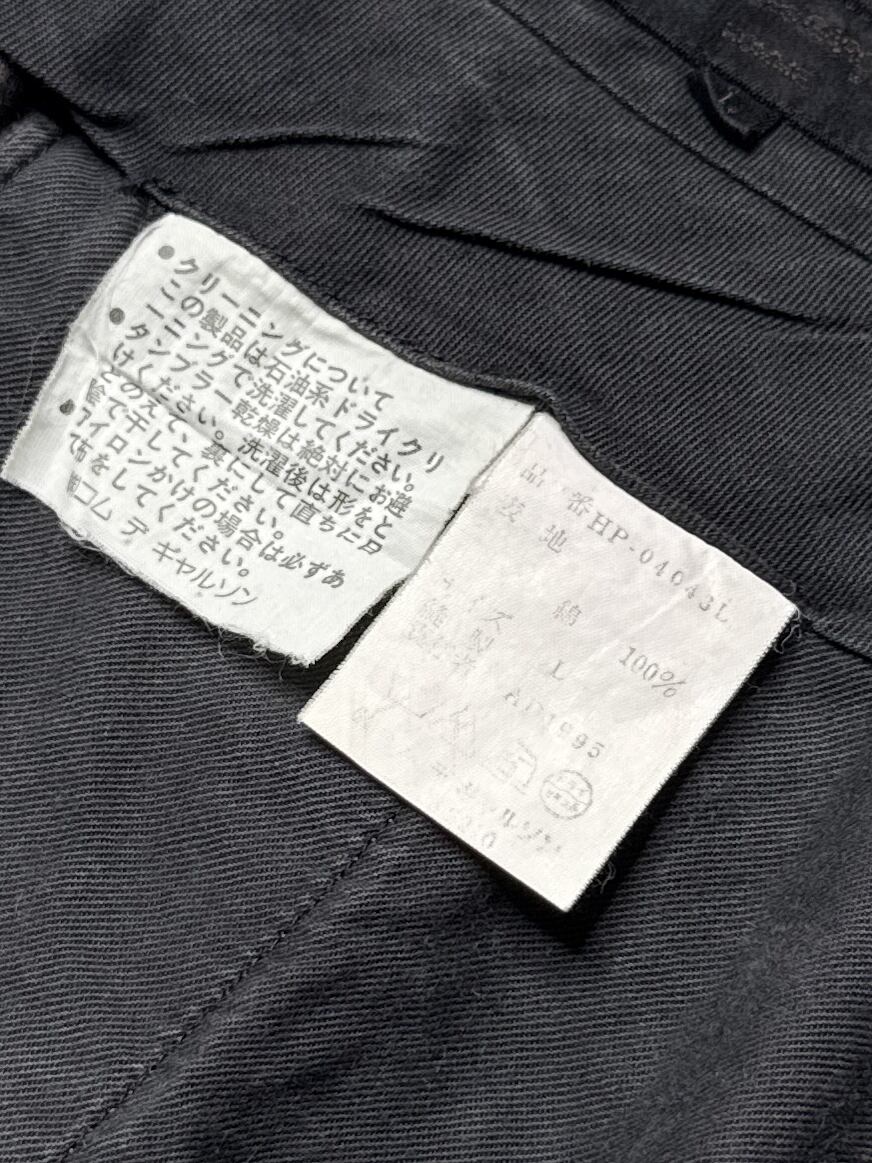 ●クリーニングについて
この製品は石油系ドライクリ
ーニングで洗濯してください。
●タンブラー乾燥は絶対にお避
けください。洗濯後は形をと
とのえて、裏にして直ちに日
陰で干してください。
●アイロンかけの場合は必ずあ
て布をしてください。
㈱コム デ ギャルソン
品番HP-04043L
表地
綿 100%
サイズ L
AD1995